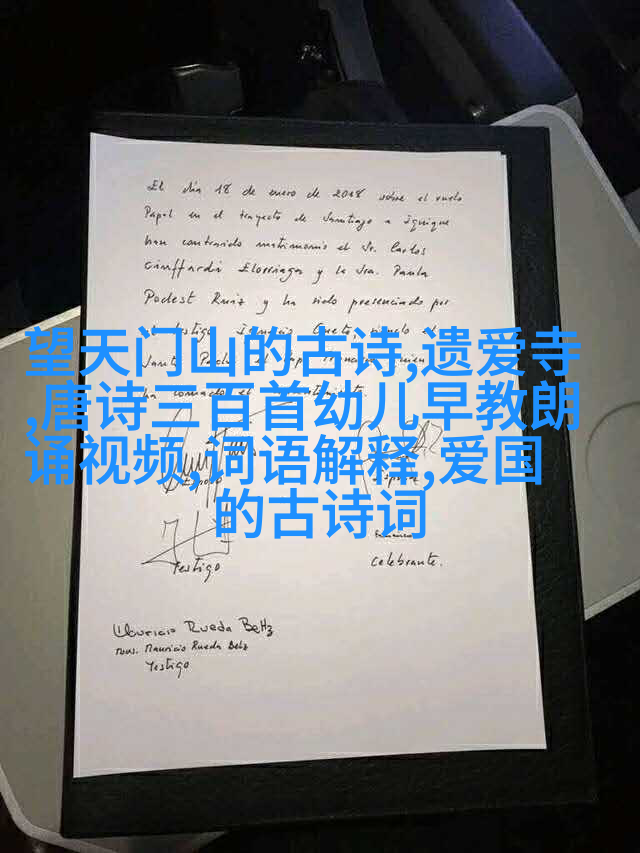 El día 18 de enero de 2018 sobre el vuelo
Papal en el trayecto de Santiago a Iquique
han contraído matrimonio el Sr. Carlos
Ciuffardi Elorriaga y la Sra. Paula
Podest Ruiz y ha sido presenciado por
望天门山的古诗,遗爱寺
,唐诗三百首幼儿早教朗
诵视频,词语解释,爱国
的古诗词
Testigo
Celebrante.
Mauricio Rueda Beltz
Mons. Mauricio Rueda Beltz
Testigo